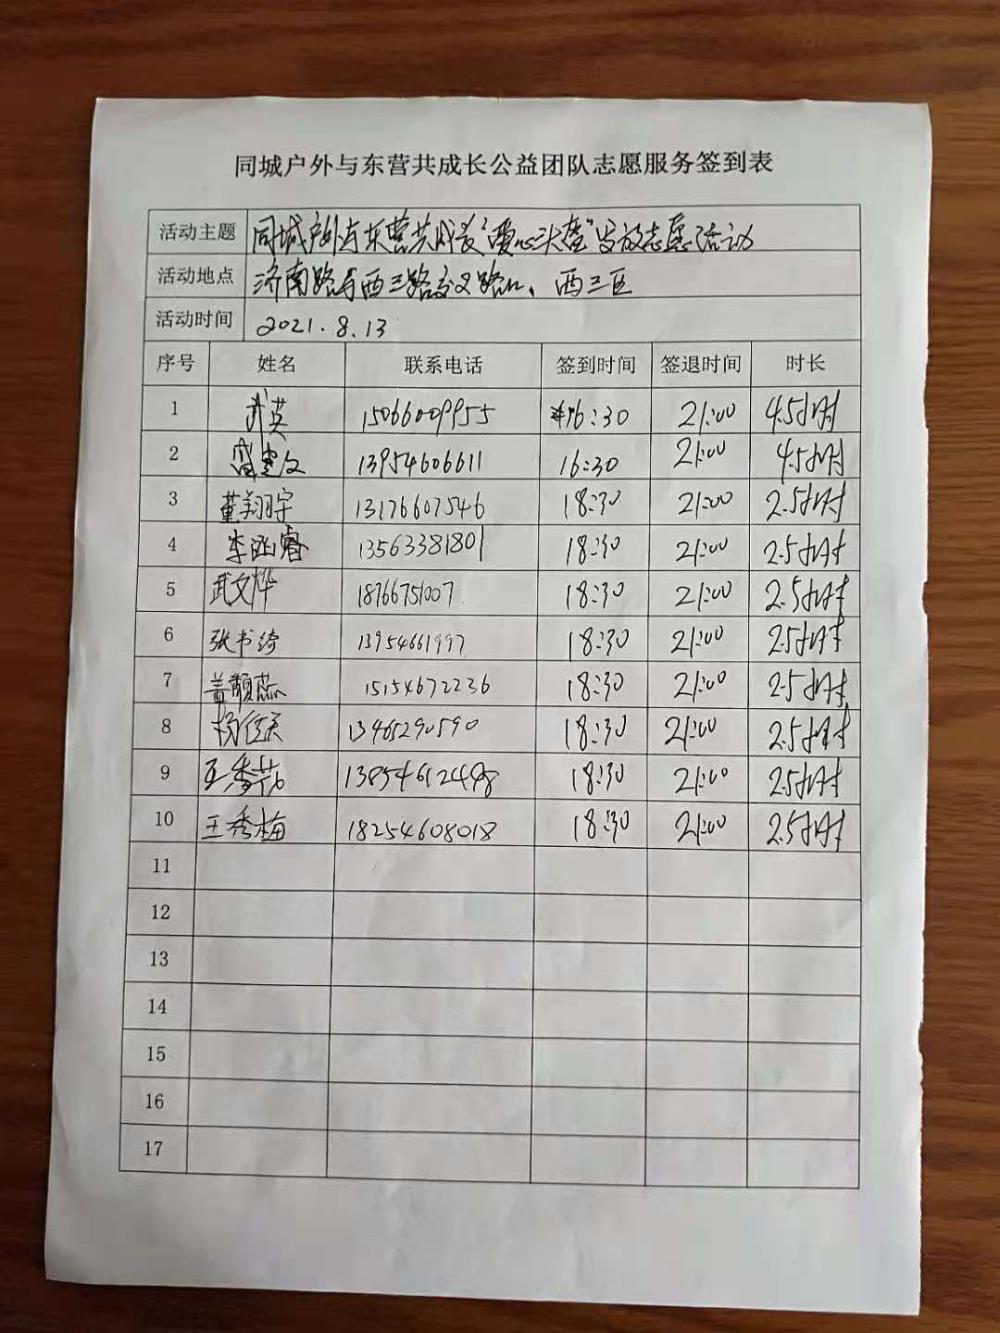 同城户外与东营共成长公益团队志愿服务签到表
活动主题 同城户外与东营共成长"爱心头盔"发放志愿活动
活动地点 济南路与西三路交叉路口、西三区
活动时间 2021.8.13
序号 姓名 联系电话 签到时间 签退时间 时长
1 武英 15066009955 16:30 21:00 4.5小时
2 13954606611 16:30 21:00 4.5小时
3 董翔宇 13176607546 18:30 21:00 2.5小时
4 李涵睿 13563381801 18:30 21:00 2.5小时
5 武文烨 18766751007 18:30 21:00 2.5小时
6 张书绮 13954661997 18:30 21:00 2.5小时
7 15154672236 18:30 21:00 2.5小时
8 13465290590 18:30 21:00 2.5小时
9 13854612498 18:30 21:00 2.5小时
10 王秀梅 18254608018 18:30 21:00 2.5小时
11
12
13
14
15
16
17